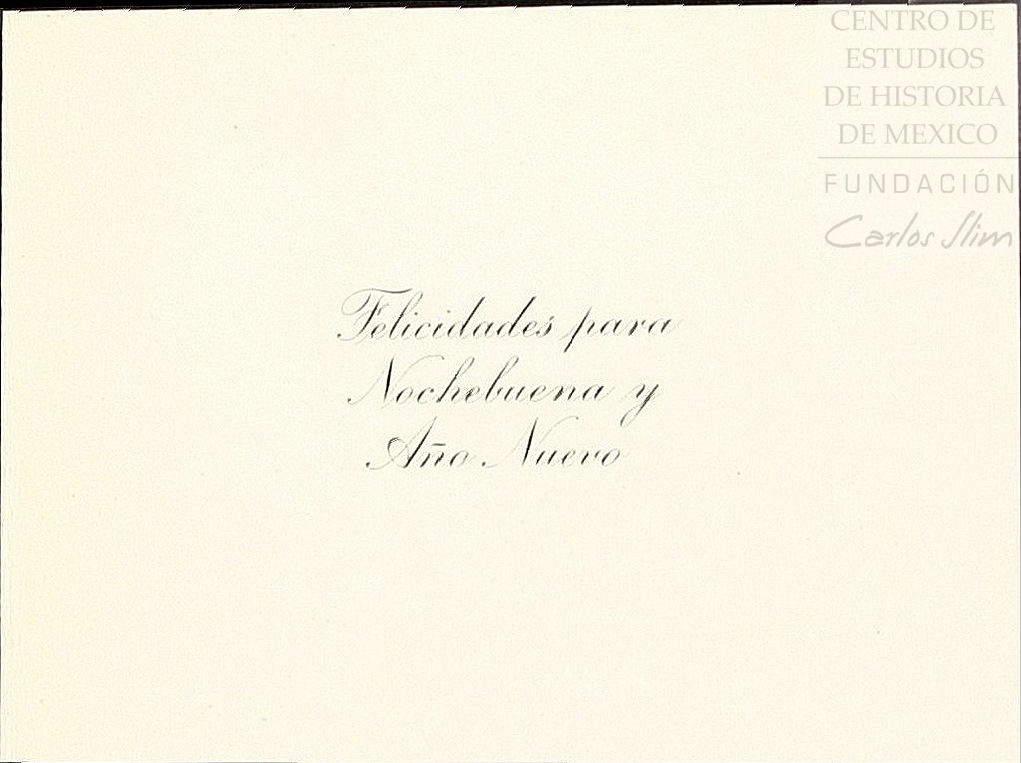 CENTRO DE
ESTUDIOS
DE HISTORIA
DE MEXICO
FUNDACIÓN
Carlos Slim
Felicidades para
Nochebuena y
Año Nuevo